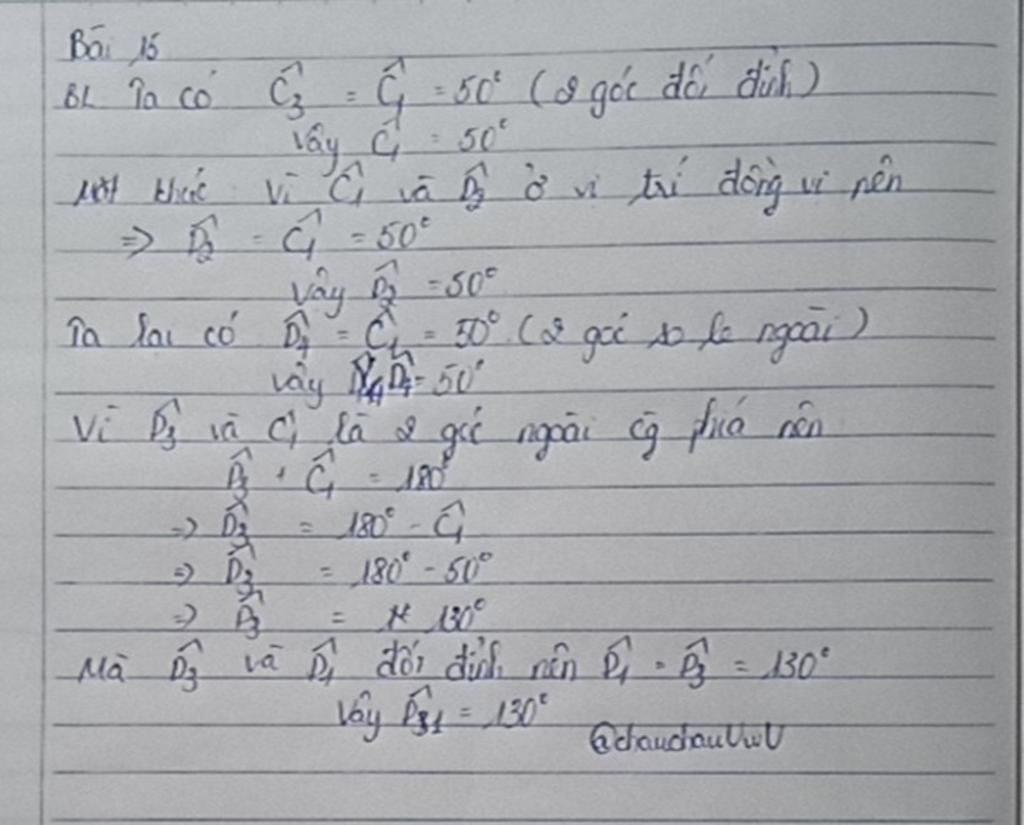 Bài 15
BL Ta có Ĉ₃ = Ĉ₁ = 50° (2 góc đối đỉnh)
Vậy Ĉ₁ = 50°
Mặt khác Vì Ĉ₁ và D̂₂ ở vị trí đồng vị nên
=> D̂₂ = Ĉ₁ = 50°
Vậy D̂₂ = 50°
Ta lại có D̂₄ = Ĉ₁ = 50° (2 góc so le ngoài)
Vậy D̂₄ = 50°
Vì D̂₃ và Ĉ₁ là 2 góc ngoài cg phiá nên
D̂₃ + Ĉ₁ = 180°
=> D̂₃ = 180° - Ĉ₁
=> D̂₃ = 180° - 50°
=> D̂₃ = 130°
Mà D̂₃ và D̂₁ đối đỉnh nên D̂₁ = D̂₃ = 130°
Vậy D̂₁ = 130°
@chauchauUwU